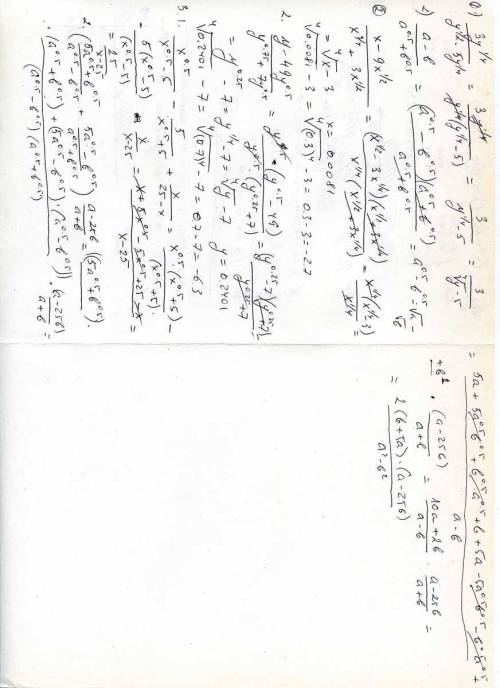 1) 3y^{1/4} / (y^{1/2} - 5y^{1/4}) = 3y^{1/4} / (y^{1/4}(y^{1/4} - 5)) = 3 / (y^{1/4} - 5) = 3 / (⁴√y - 5)
2) (a - b) / (a^{0.5} + b^{0.5}) = (a^{0.5} - b^{0.5})(a^{0.5} + b^{0.5}) / (a^{0.5} + b^{0.5}) = a^{0.5} - b^{0.5} = √a - √b
(x - 9x^{1/2}) / (x^{1/2} + 3x^{1/4}) = (x^{1/2} - 3x^{1/4})(x^{1/2} + 3x^{1/4}) / (x^{1/4}(x^{1/4} + 3)) = x^{1/4}(x^{1/4} - 3) / x^{1/4} =
= ⁴√x - 3 x = 0.0081
⁴√0.0081 - 3 = ⁴√(0.3)⁴ - 3 = 0.3 - 3 = -2.7
2. (y - 49y^{0.5}) / (y^{0.5} + 7y^{0.25}) = y^{0.5}(y^{0.5} - 49) / (y^{0.25}(y^{0.25} + 7)) = y^{0.25}(y^{0.25} - 7)(y^{0.25} + 7) / (y^{0.25} + 7) =
= y^{1/4} - 7 = ⁴√y - 7 y = 0.2401
⁴√0.2401 - 7 = ⁴√(0.7)⁴ - 7 = 0.7 - 7 = -6.3
3. 1. x^{0.5} / (x^{0.5} - 5) - 5 / (x^{0.5} + 5) + x / (25 - x) = (x^{0.5}·(x^{0.5} + 5) -
- 5(x^{0.5} - 5)) / ((x^{0.5} - 5)(x^{0.5} + 5)) - x / (x - 25) = (x + 5x^{0.5} - 5x^{0.5} + 25 - x) / (x - 25) =
= 25 / (x - 25)
2. ((5a^{0.5} + b^{0.5}) / (a^{0.5} - b^{0.5}) + (5a^{0.5} - b^{0.5}) / (a^{0.5} + b^{0.5})) · (a - 25b) / (a + b) = ((5a^{0.5} + b^{0.5}) ·
· (a^{0.5} + b^{0.5}) + (5a^{0.5} - b^{0.5}) · (a^{0.5} - b^{0.5})) / ((a^{0.5} - b^{0.5})(a^{0.5} + b^{0.5})) · (a - 25b) / (a + b) =
= (5a + 5a^{0.5}b^{0.5} + b^{0.5}a^{0.5} + b + 5a - 5a^{0.5}b^{0.5} - b^{0.5}a^{0.5} +
+ b) / (a - b) · (a - 25b) / (a + b) = (10a + 2b) / (a - b) · (a - 25b) / (a + b) =
= 2(b + 5a) · (a - 25b) / (a² - b²)